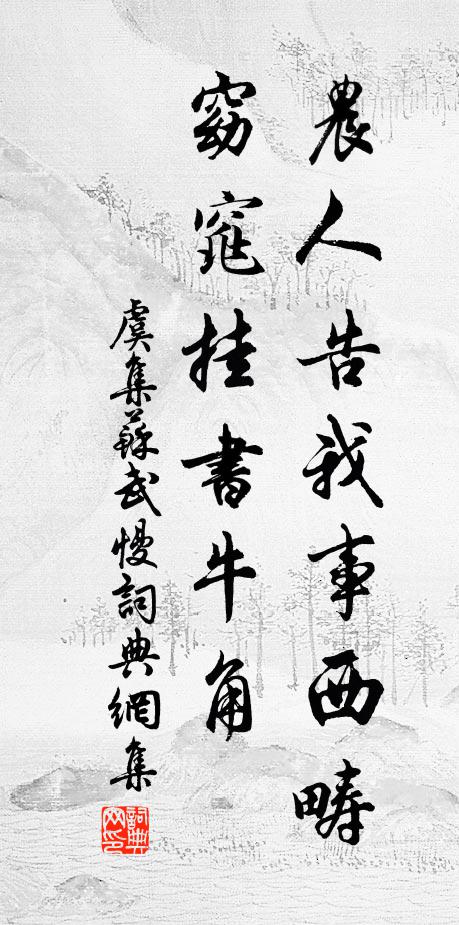 農人告我事西疇
窈窕挂書牛角
虞集蘇武慢詞典網集
詞典网印